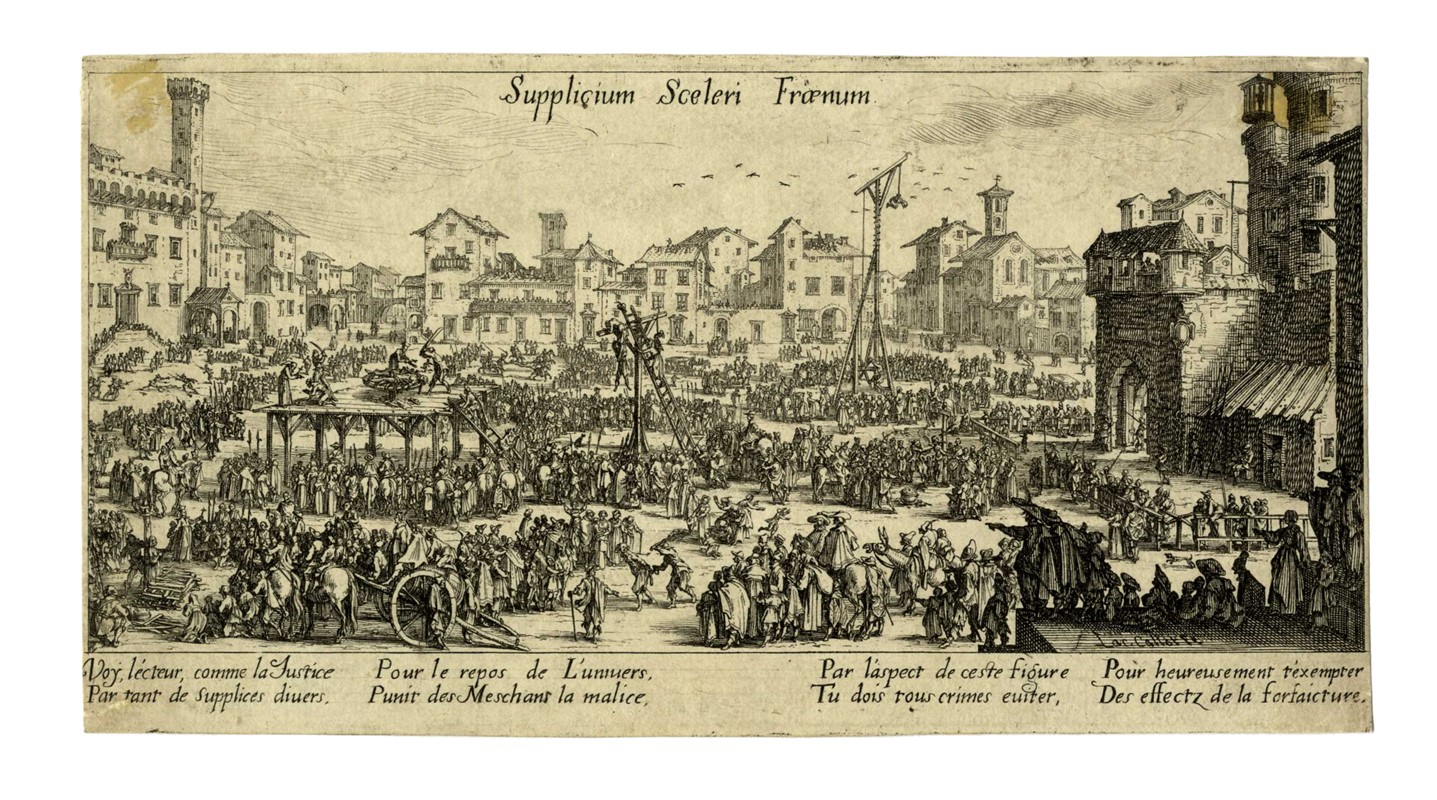 Supplicium Sceleri Frœnum
Iac. Callot f.
Voy, lécteur, comme la Justice
Par tant de Supplices diuers,
Pour le repos de L'uniuers,
Punit des Meschans la malice,
Par láspect de ceste figure
Tu dois tous crimes euiter,
Pour heureusement t'éxempter
Des effectz de la forfaicture.